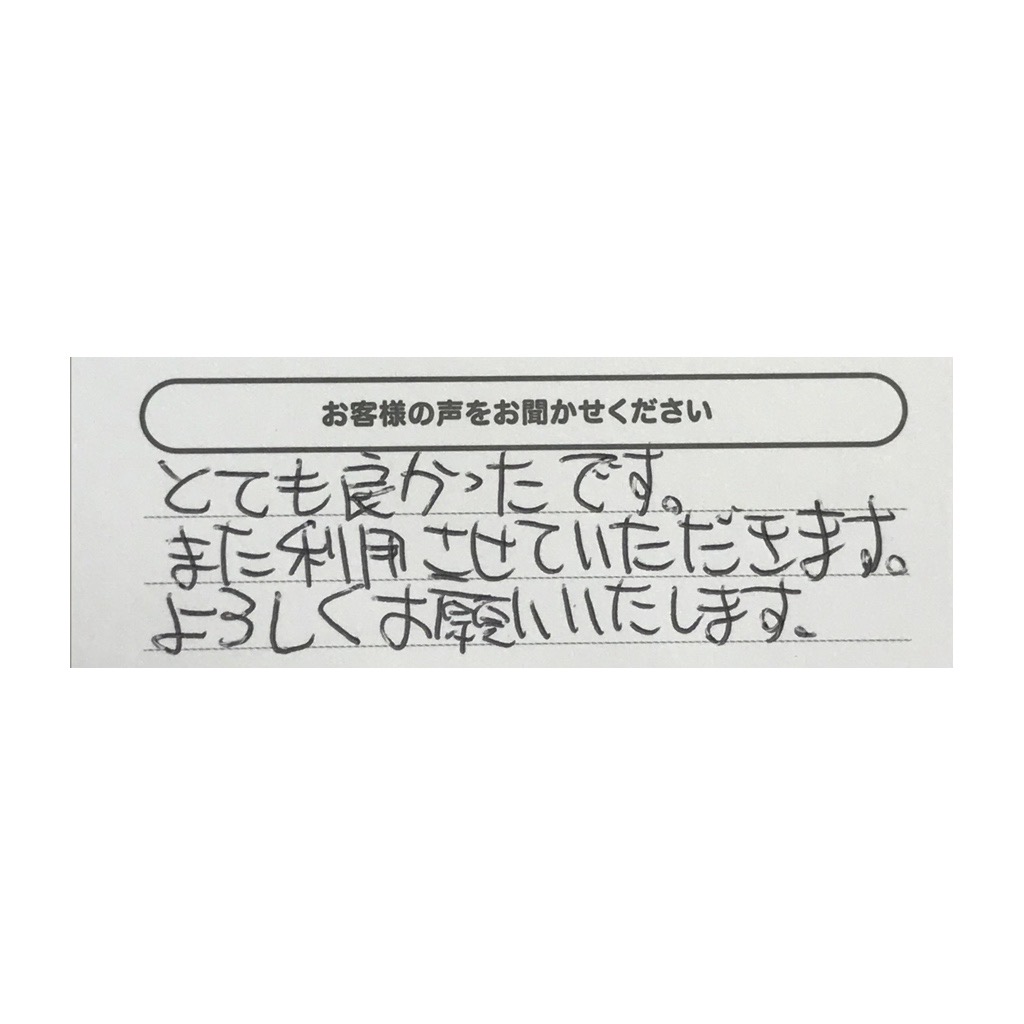 お客様の声をお聞かせください
とても良かったです。
また利用させていただきます。
よろしくお願いいたします.